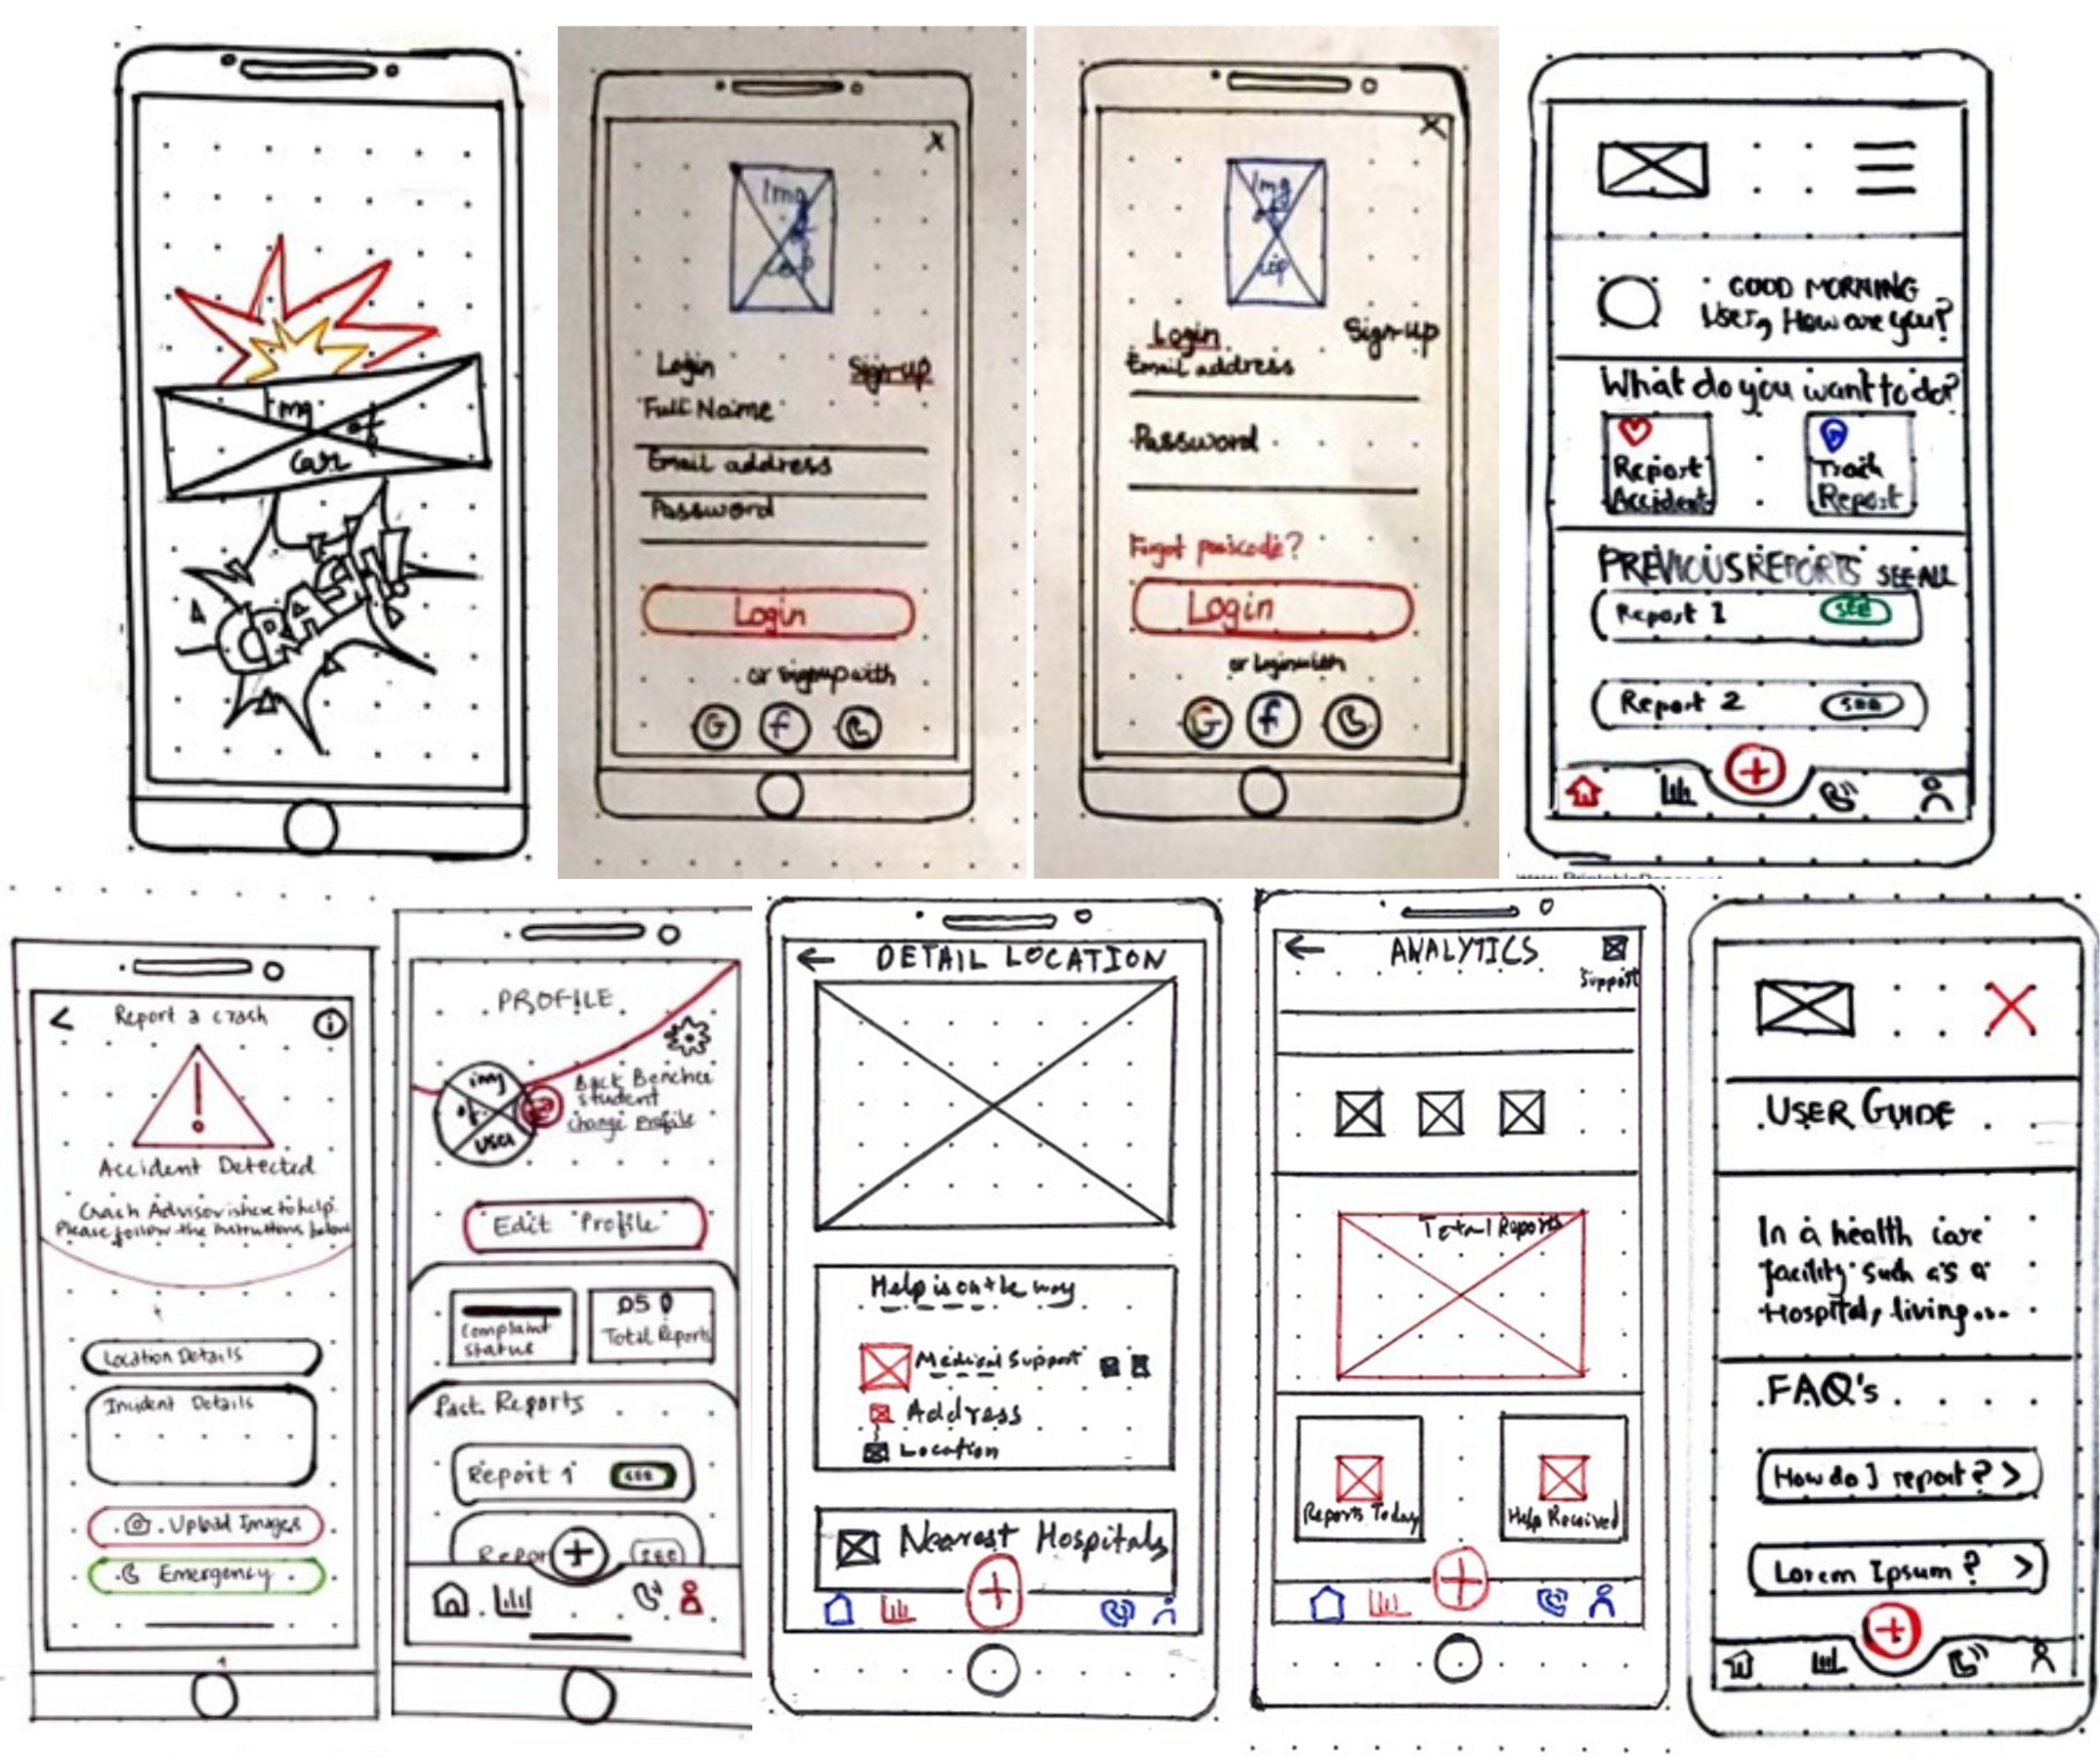 Img
of
car
CRASH!
x
Img
of
cop
Login
Sign-up
Full Name
Email address
Password
Login
or signup with
G f
X
Img
of
cop
Login
Sign-up
Email address
Password
Forgot passcode?
Login
or login with
G f
GOOD MORNING
User, How are you?
What do you want to do?
Report
Accident
Track
Report
PREVIOUS REPORTS SEE ALL
Report 1 SEE
Report 2 SEE
+
< Report a crash i
!
Accident Detected
Crash Advisor is here to help.
Please follow the instructions below
Location Details
Incident Details
Upload Images
Emergency
PROFILE
img
of
user
Back Bencher
student
change profile
Edit Profile
Complaint
status
05
Total Reports
Past Reports
Report 1 SEE
Repor + SEE
← DETAIL LOCATION
Help is on the way
Medical Support
Address
Location
Nearest Hospitals
+
← ANALYTICS
Support
Total Reports
Reports Today
Help Received
+
X
USER GUIDE
In a health care
facility such as a
Hospital, living...
FAQ's
How do I report? >
Lorem Ipsum? >
+